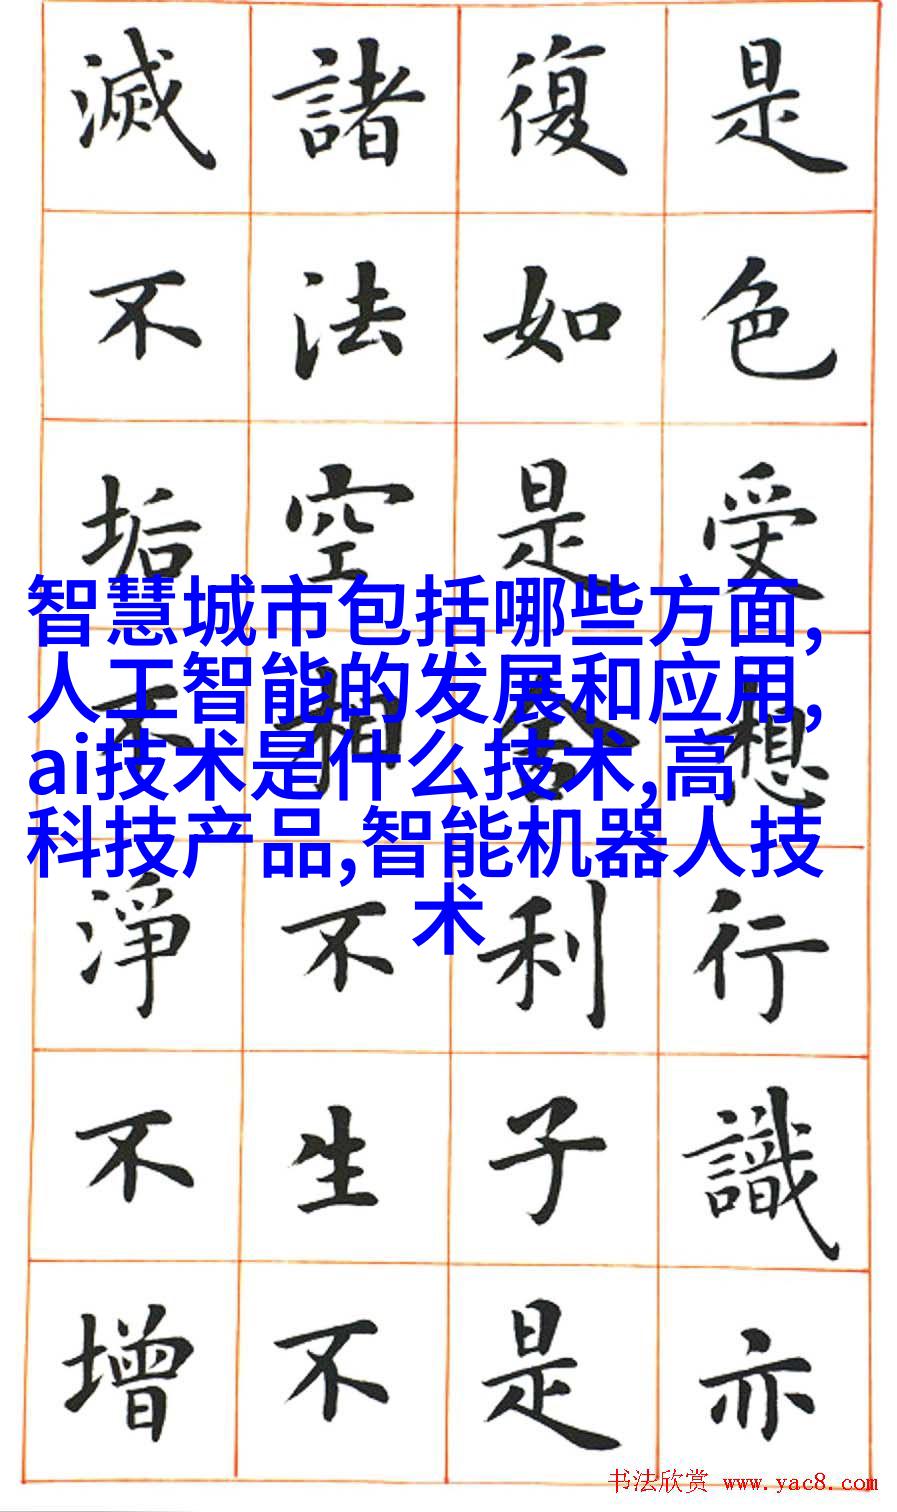 是色受想行識亦
復如是舍利子是
諸法空相不生不
滅不垢不淨不增
智慧城市包括哪些方面,
人工智能的发展和应用,
ai技术是什么技术,高
科技产品,智能机器人技
术
书法欣赏 www.yac8.com